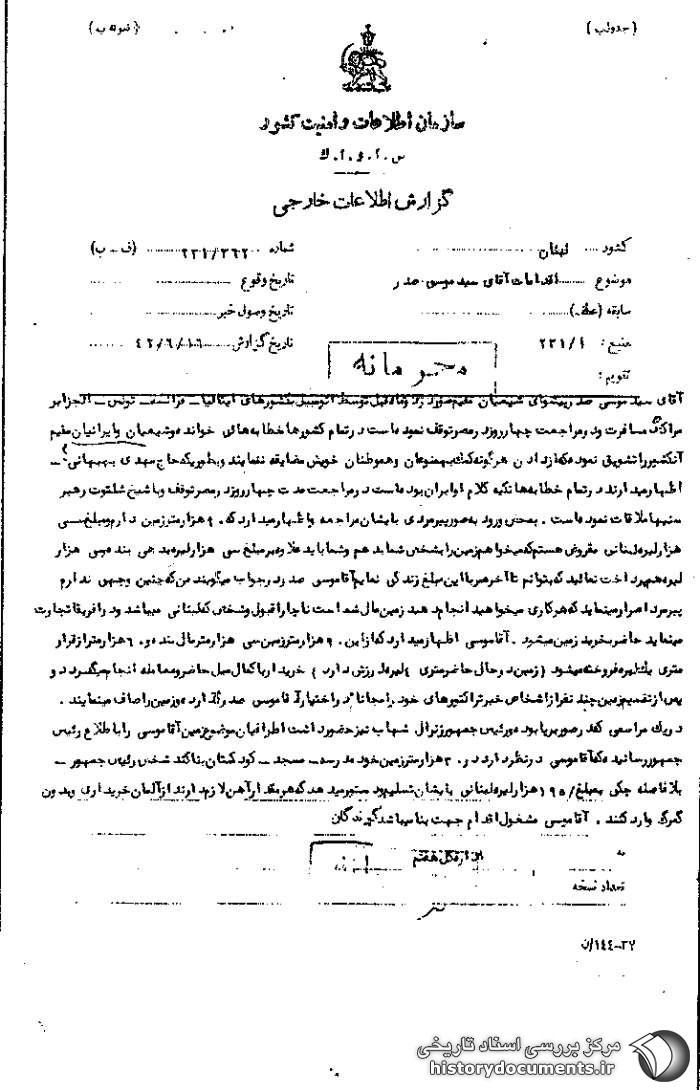 (جدول ب) (نمونه ب)
سازمان اطلاعات و امنیت کشور
س . ا . و . ا . ک
گزارش اطلاعات خارجی
کشور لبنان شماره ۲۳۱/۳۶۲ (ف - ب)
موضوع اقدامات آقای سید موسی صدر تاریخ وقوع
سابقه (عطف) تاریخ وصول خبر
منبع: ۲۳۱/۱ تاریخ گزارش ۴۲/۶/۱۶
تقویم: محرمانه
آقای سید موسی صدر پیشوای شیعیان مقیم صور در توسط اتومبیل بکشورهای ایتالیا - فرانسه - تونس - الجزایر
مراکش مسافرت و در مراجعت چهار روز در مصر توقف نموده است در تمام کشورها خطابه های خوانده و شیعیان و ایرانیان مقیم
آنکشور را تشویق نموده که از دادن هر گونه کمک بهمنوعان و هموطنان خویش مضایقه ننمایند و بطوریکه حاج مهدی بهبهانی -
اظهار میدارند در تمام خطابه ها تکیه کلام او ایران بوده است در مراجعت مدت چهار روز در مصر توقف و با شیخ شلتوت رهبر
سنیها ملاقات نموده است . بمحض ورود به صور پیرمردی بایشان مراجعه و اظهار میدارد که . هزار متر زمین دارم و مبلغ سی
هزار لیره لبنانی مقروض هستم که میخواهم زمین را بشخص شما بدهم و شما باید علاوه بر مبلغ سی هزار لیره بدهی بنده سی هزار
لیره هم پرداخت نمائید که بتوانم تا آخر عمر با این مبلغ زندگی نمایم آقا موسی صدر در جواب میگویند من که چنین وجهی ندارم
پیرمرد اصرار مینماید که هر کاری میخواهید انجام دهید زمین مال شما است ناچارا قبول و شخصی که لبنانی میباشد و در افریقا تجارت
مینماید حاضر بخرید زمین میشود . آقا موسی اظهار میدارد که از این ۹ هزار متر زمین سی هزار متر مال بنده و ۶ هزار متر از قرار
متری یک لیره فروخته میشود (زمین در حال حاضر متری لیره ارزش دارد) خریدار با کمال میل حاضر و معامله انجام میگیرد و
پس از تقسیم زمین چند نفر از اشخاص خیر تراکتورهای خود را مجانا در اختیار آقا موسی صدر گذارده و زمین را صاف مینمایند .
در یک مراسمی که در صور برپا بوده و رئیس جمهور ژنرال شهاب نیز حضور داشت اطرافیان موضوع زمین آقا موسی را باطلاع رئیس
جمهور رسانیده که آقا موسی در نظر دارد در ۳ هزار متر زمین خود مدرسه - مسجد - کودکستان بنا کند شخص رئیس جمهور -
بلافاصله چکی بمبلغ هزار لیره لبنانی بایشان تسلیم و دستور میدهد که هر مقدار آهن لازم دارند از آلمان خریداری و بدون
گمرک وارد کنند . آقا موسی مشغول اقدام جهت بنا میباشد گیرندگان
به اداره کل هفتم
تعداد نسخه
۳۷-۱۴۴/ن
مرکز بررسی اسناد تاریخی
historydocuments.ir